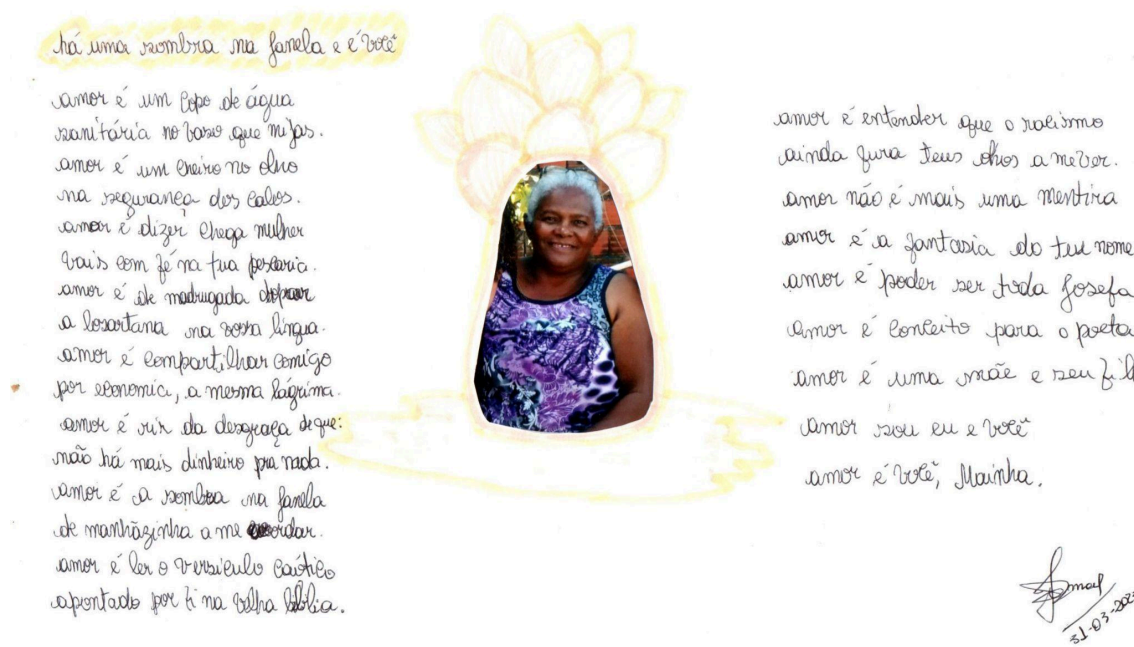 há uma sombra na janela e é você
amor é um copo de água
sanitária no vaso que mijas.
amor é um cheiro no olho
na segurança dos calos.
amor é dizer chega mulher
vais com fé na tua pescaria.
amor é de madrugada dopar
a losartana na vossa língua.
amor é compartilhar comigo
por economia, a mesma lágrima.
amor é rir da desgraça de que:
não há mais dinheiro pra nada.
amor é a sombra na janela
de manhãzinha a me acordar.
amor é ler o versículo caótico
apontado por ti na velha bíblia.
amor é entender que o racismo
ainda fura teus olhos a me ver.
amor não é mais uma mentira
amor é a fantasia do teu nome
amor é poder ser toda Josefa
amor é conceito para o poeta
amor é uma mãe e seu fil
amor sou eu e você
amor é você, Mainha.
31-03-202